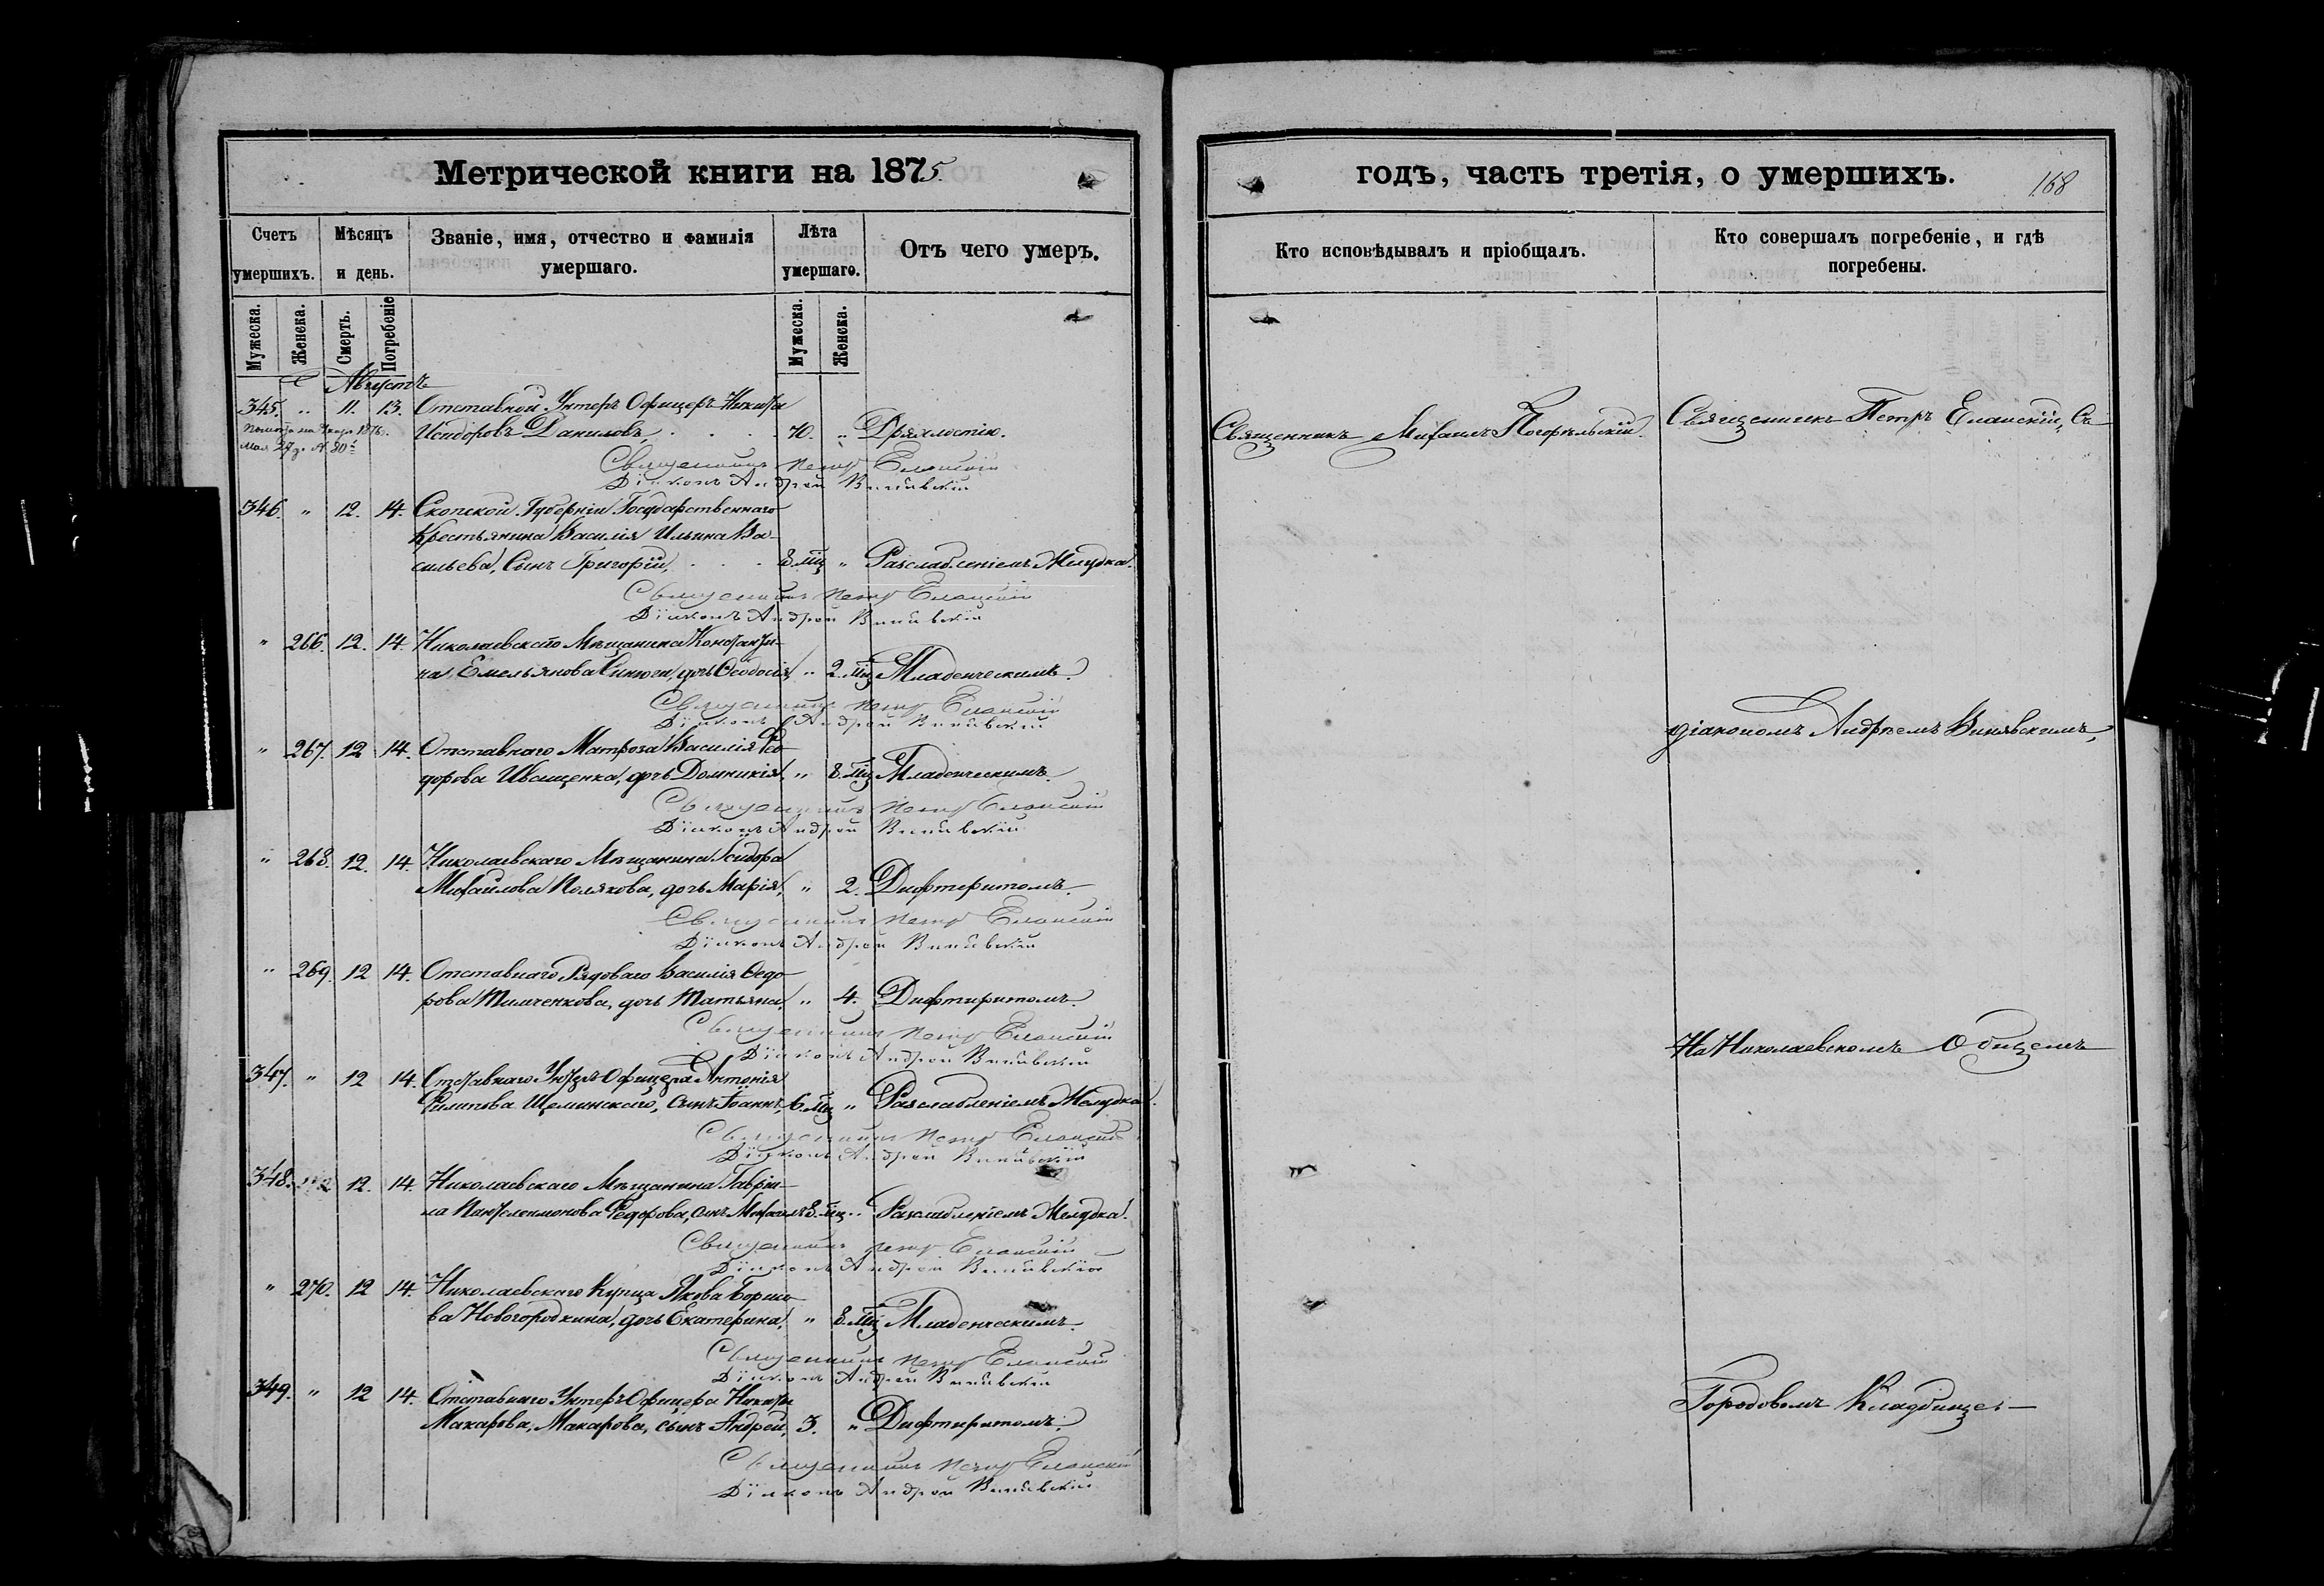 Метрической книги на 1875.
Счетъ умершихъ.
Мѣсяцъ и день.
Званіе, имя, отчество и фамилія умершаго.
Лѣта умершаго.
Отъ чего умеръ.
Мужеска.
Женска.
Смерть.
Погребеніе
Мужеска.
Женска.
Августъ
345. " 11. 13. Отставной Унтеръ Офицеръ Никита
Исидоровъ Даниловъ, 70. " Дряхлостію.
1876.
мая 27 д. № 80
Священникъ Петръ Еланскій
Діаконъ Андрей Винявскій
346. " 12. 14. Губерніи Государственнаго
Крестьянина Василія Ильина Ва-
сильева, Сынъ Григорій, 8 мц " Разслабленіемъ Желудка.
Священникъ Петръ Еланскій
Діаконъ Андрей Винявскій
" 266. 12. 14. Николаевскаго Мѣщанина Константи-
на Емельянова дочь Ѳеодосія, " 2 мц Младенческимъ.
Священникъ Петръ Еланскій
Діаконъ Андрей Винявскій
" 267. 12 14. Отставнаго Матроза Василія Ѳео-
дорова Иващенка, дочь Домникія, " 8 мц Младенческимъ.
Священникъ Петръ Еланскій
Діаконъ Андрей Винявскій
" 268. 12. 14. Николаевскаго Мѣщанина Исидора
Михаилова Полякова, дочь Марія, " 2. Дифтеритомъ.
Священникъ Петръ Еланскій
Діаконъ Андрей Винявскій
" 269. 12 14. Отставнаго Рядоваго Василія Ѳедо-
рова Тимченкова, дочь Татьяна, " 4. Дифтиритомъ.
Священникъ Петръ Еланскій
Діаконъ Андрей Винявскій
347. " 12 14. Отставнаго Унтеръ Офицера Антонія
Филипова Щеминскаго, сынъ Іоаннъ, 6. мц " Разслабленіемъ Желудка.
Священникъ Петръ Еланскій
Діаконъ Андрей Винявскій
348. 12. 14. Николаевскаго Мѣщанина Гаврі-
ла Пантелеимонова Федорова, сынъ Михаилъ 8. мц " Разслабленіемъ Желудка.
Священникъ Петръ Еланскій
Діаконъ Андрей Винявскій
" 270. 12 14. Николаевскаго Купца Якова Бориса-
ва Новогородкина, дочь Екатерина, " 8. мц Младенческимъ.
Священникъ Петръ Еланскій
Діаконъ Андрей Винявскій
349. " 12 14. Отставнаго Унтеръ Офицера Никиты
Макарова, Макарова, сынъ Андрей, 3. " Дифтиритомъ.
Священникъ Петръ Еланскій
Діаконъ Андрей Винявскій
годъ, часть третія, о умершихъ. 168
Кто исповѣдывалъ и пріобщалъ.
Кто совершалъ погребеніе, и гдѣ погребены.
Священникъ Михаилъ Погорѣльскій.
Священникъ Петръ Еланскій, Съ
діакономъ Андреемъ Винявскимъ,
На Николаевскомъ Общемъ
Городовомъ Кладбище.